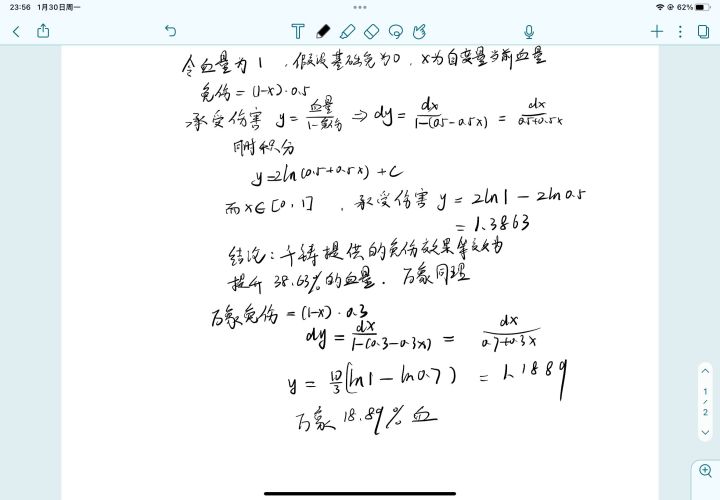 23:56 1月30日周一
62%
令血量为1，假设基础免为0，x为自变量当前血量
免伤=(1-x)·0.5
承受伤害 y=血量/1-免伤 ⇒ dy=dx/1-(0.5-0.5x) = dx/0.5+0.5x
同时积分
y=2ln(0.5+0.5x)+C
而x∈[0,1]，承受伤害 y=2ln1-2ln0.5
=1.3863
结论：千铸提供的免伤效果等效为
提升38.63%的血量．万象同理
万象免伤=(1-x)·0.3
dy=dx/1-(0.3-0.3x) = dx/0.7+0.3x
y=10/3(ln1-ln0.7) =1.1889
万象18.89%血
1/2